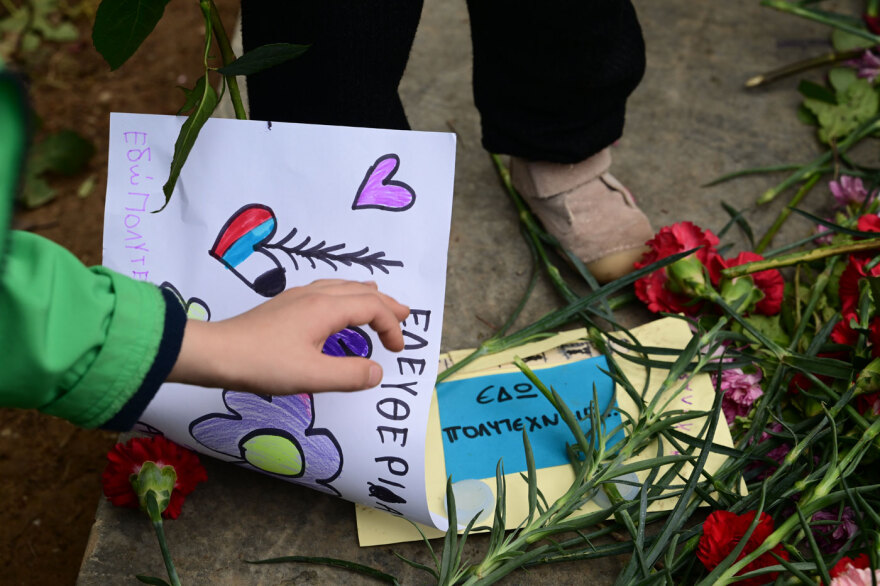 Εδώ Πολυτε
ΕΛΕΥΘΕΡΙΑ
ΕΔΩ
ΠΟΛΥΤΕΧΝΕΙΟ...